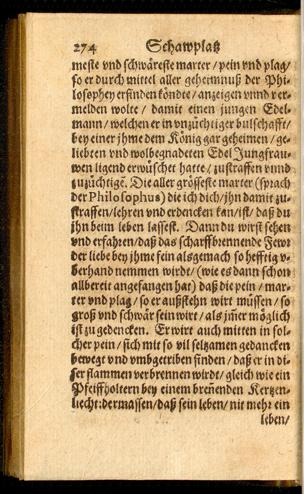 274 Schawplatz
meste vnd schwäreste marter / pein vnd plag /
so er durch mittel aller geheimnuß der Phi-
losophey erfinden köndte / anzeigen vnnd ver-
melden wolte / damit einen jungen Edel-
mann / welchen er in vnzüchtiger bulschafft /
bey einer jhme dem König gar geheimen / ge-
liebten vnd wolbegnadeten Edel Jungfrau-
wen ligend erwüschet hatte / zustraffen vnnd
zuzüchtigē. Die aller grösseste marter (sprach
der Philosophus) die ich dich / jhn damit zu-
straffen / lehren vnd erdencken kan / ist / daß du
jhn beim leben lassest. Dann du wirst sehen
vnd erfahren / daß das scharffbrennende Fewr
der liebe bey jhme sein als gemach so hefftig v-
berhand nemmen wirdt / (wie es dann schon
allbereit angefangen hat) daß die pein / mar-
ter vnd plag / so er außstehn wirt müssen / so
groß vnd schwär sein wirt / als jm̄er möglich
ist zu gedencken. Er wirt auch mitten in sol-
cher pein / sich mit so vil seltzamen gedancken
bewegt vnd vmbgetriben finden / daß er in di-
ser flammen verbrennen wirdt / gleich wie ein
Pfeiffholtern bey einem breñenden Kertzen-
liecht: dermassen / daß sein leben / nit mehr ein
leben /